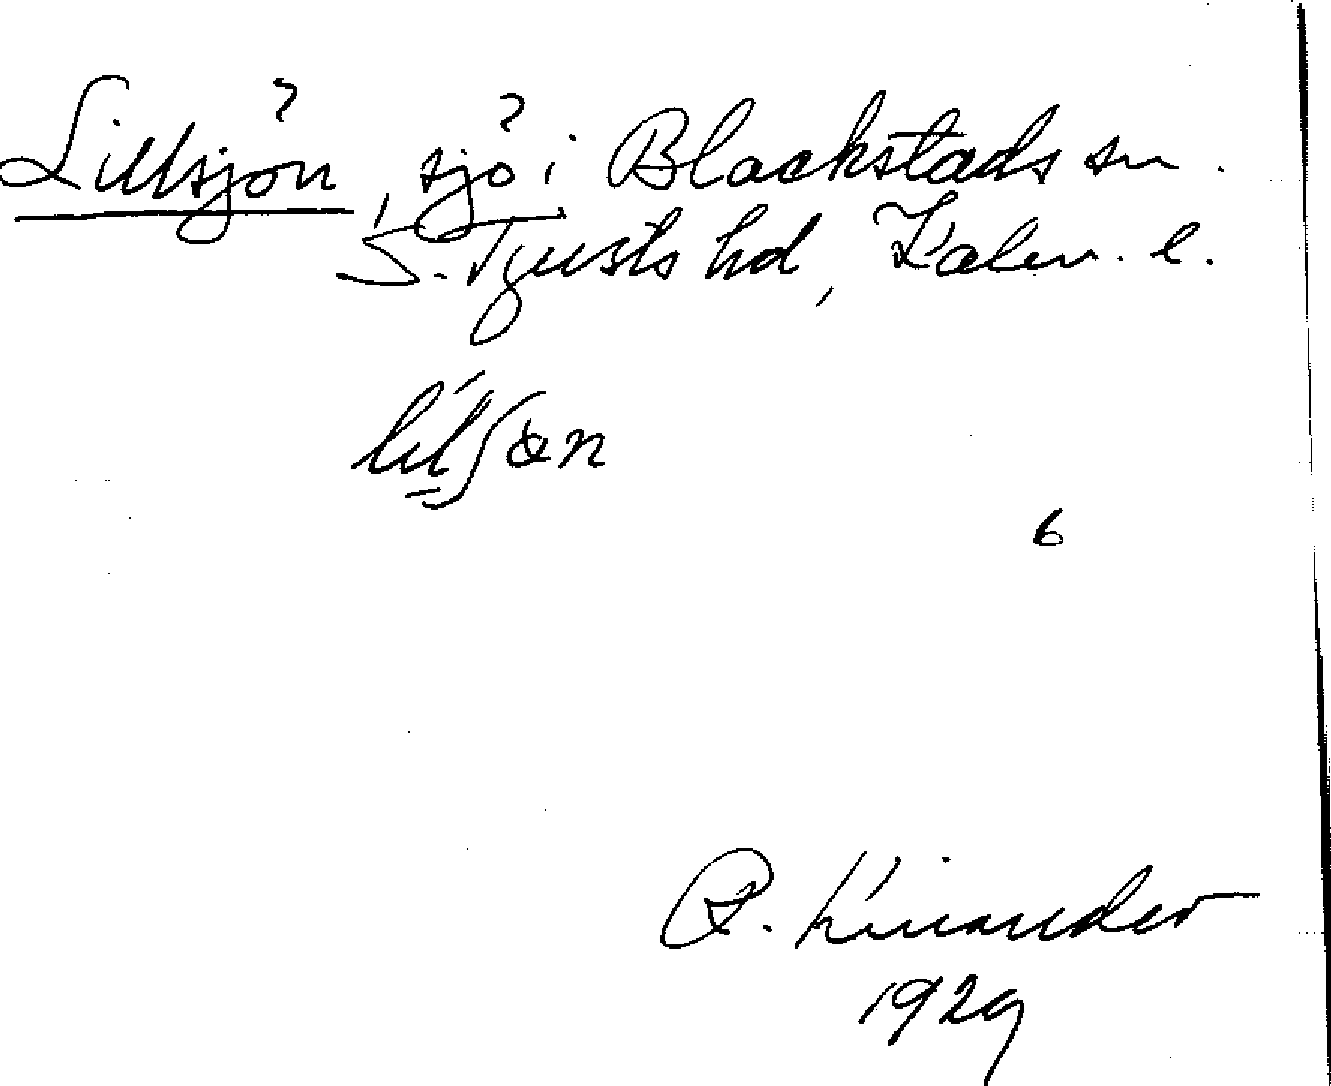 Lillsjön, sjö i Blackstads sn.
S. Tjusts hd, Kalm. l.
lil̳ʃɷn
6
R. Kinander
1929